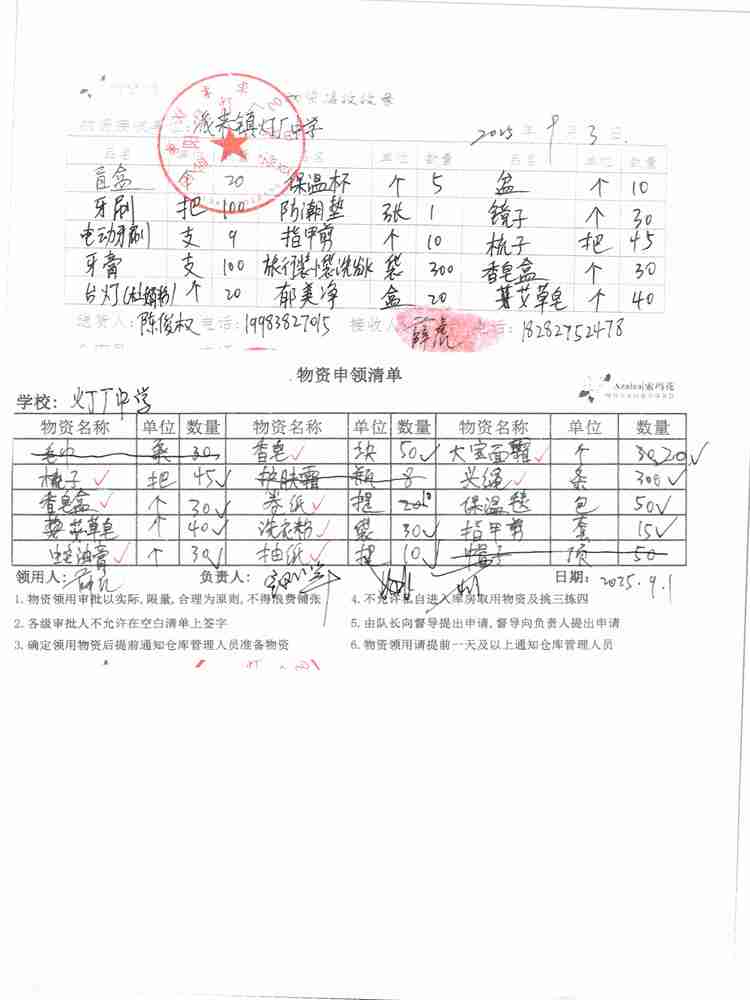 物资接收收条
派来镇灯厂中学 2025年9月3日.
品名 单位 数量 品名 单位 数量
盲盒 盒 20 保温杯 个 5 盆 个 10
牙刷 把 100 防潮垫 张 1 镜子 个 30
电动牙刷 支 9 指甲剪 个 10 梳子 把 45
牙膏 支 100 旅行装小袋洗发水 袋 300 香皂盒 个 30
台灯 个 20 郁美净 盒 20 艾草皂 个 40
送货人:陈俊权 电话:19983827015 接收人:薛虎 电话:18282952478
物资申领清单
学校:灯厂中学 Azalea|索玛花
物资名称 单位 数量 物资名称 单位 数量 物资名称 单位 数量
毛巾 条 30 香皂 块 50 大宝面霜 个 30 20
梳子 把 45 护肤霜 瓶 8 头绳 条 300
香皂盒 个 30 卷纸 提 20 10 保温毯 包 50
艾草皂 个 40 洗衣粉 袋 30 指甲剪 套 15
蛇油膏 个 30 抽纸 提 10 帽子 顶 50
领用人:薛虎 负责人: 日期:2025.9.1
1.物资领用审批以实际,限量,合理为原则,不得浪费铺张 4.不允许私自进入库房取用物资及挑三拣四
2.各级审批人不允许在空白清单上签字 5.由队长向督导提出申请,督导向负责人提出申请
3.确定领用物资后提前通知仓库管理人员准备物资 6.物资领用请提前一天及以上通知仓库管理人员